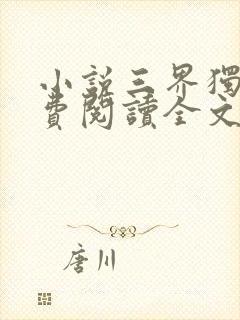 小說三界獨
費閱讀全文
唐川